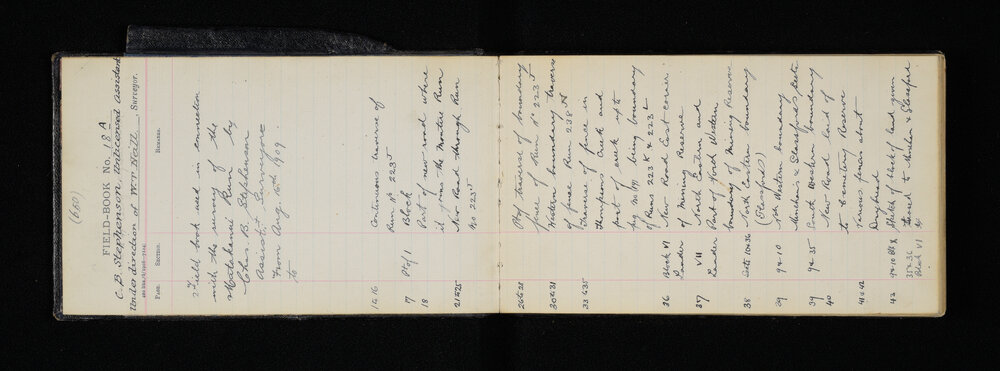 (660)
FIELD-BOOK No. 18 A
C. B. Stephenson, Unlicensed Assistant
Under direction of W. D. Neill, Surveyor.
PAGE. SECTION. REMARKS.
Field book used in connection
with the survey of the
Matakanui Run by
Chas. B. Stephenson
Assist. Surveyor
From Aug. 1909
to
1 to 16 Continuous traverse of
Run No 223J
17 Pt of 1 Block
18 Part of new road where
it joins the Run
21 to 25 New Road through Run
No 223J
26 to 28 traverse of boundary
fence of Run No 223J
30 to 31 Western boundary traverse
of fence Run 238
33 to 35 Traverse of fence in
Thompsons Creek and
part of creek up to
peg being boundary
of Runs 223K & 223L
36 Block VI New Road East corner
Lauder of Mining Reserve
37 VII North Eastern and
Lauder Part of North Western
boundary of Mining Reserve
38 Sects North Eastern boundary
(Glassfords)
39 94-10 NW Western boundary
& Glassfords Sects
39 94-35 South Western boundary
40 New Road
to Cemetery Reserve
41 to 42 Various fences about
Dryhead
43 Sketch of block of land given
Block VI